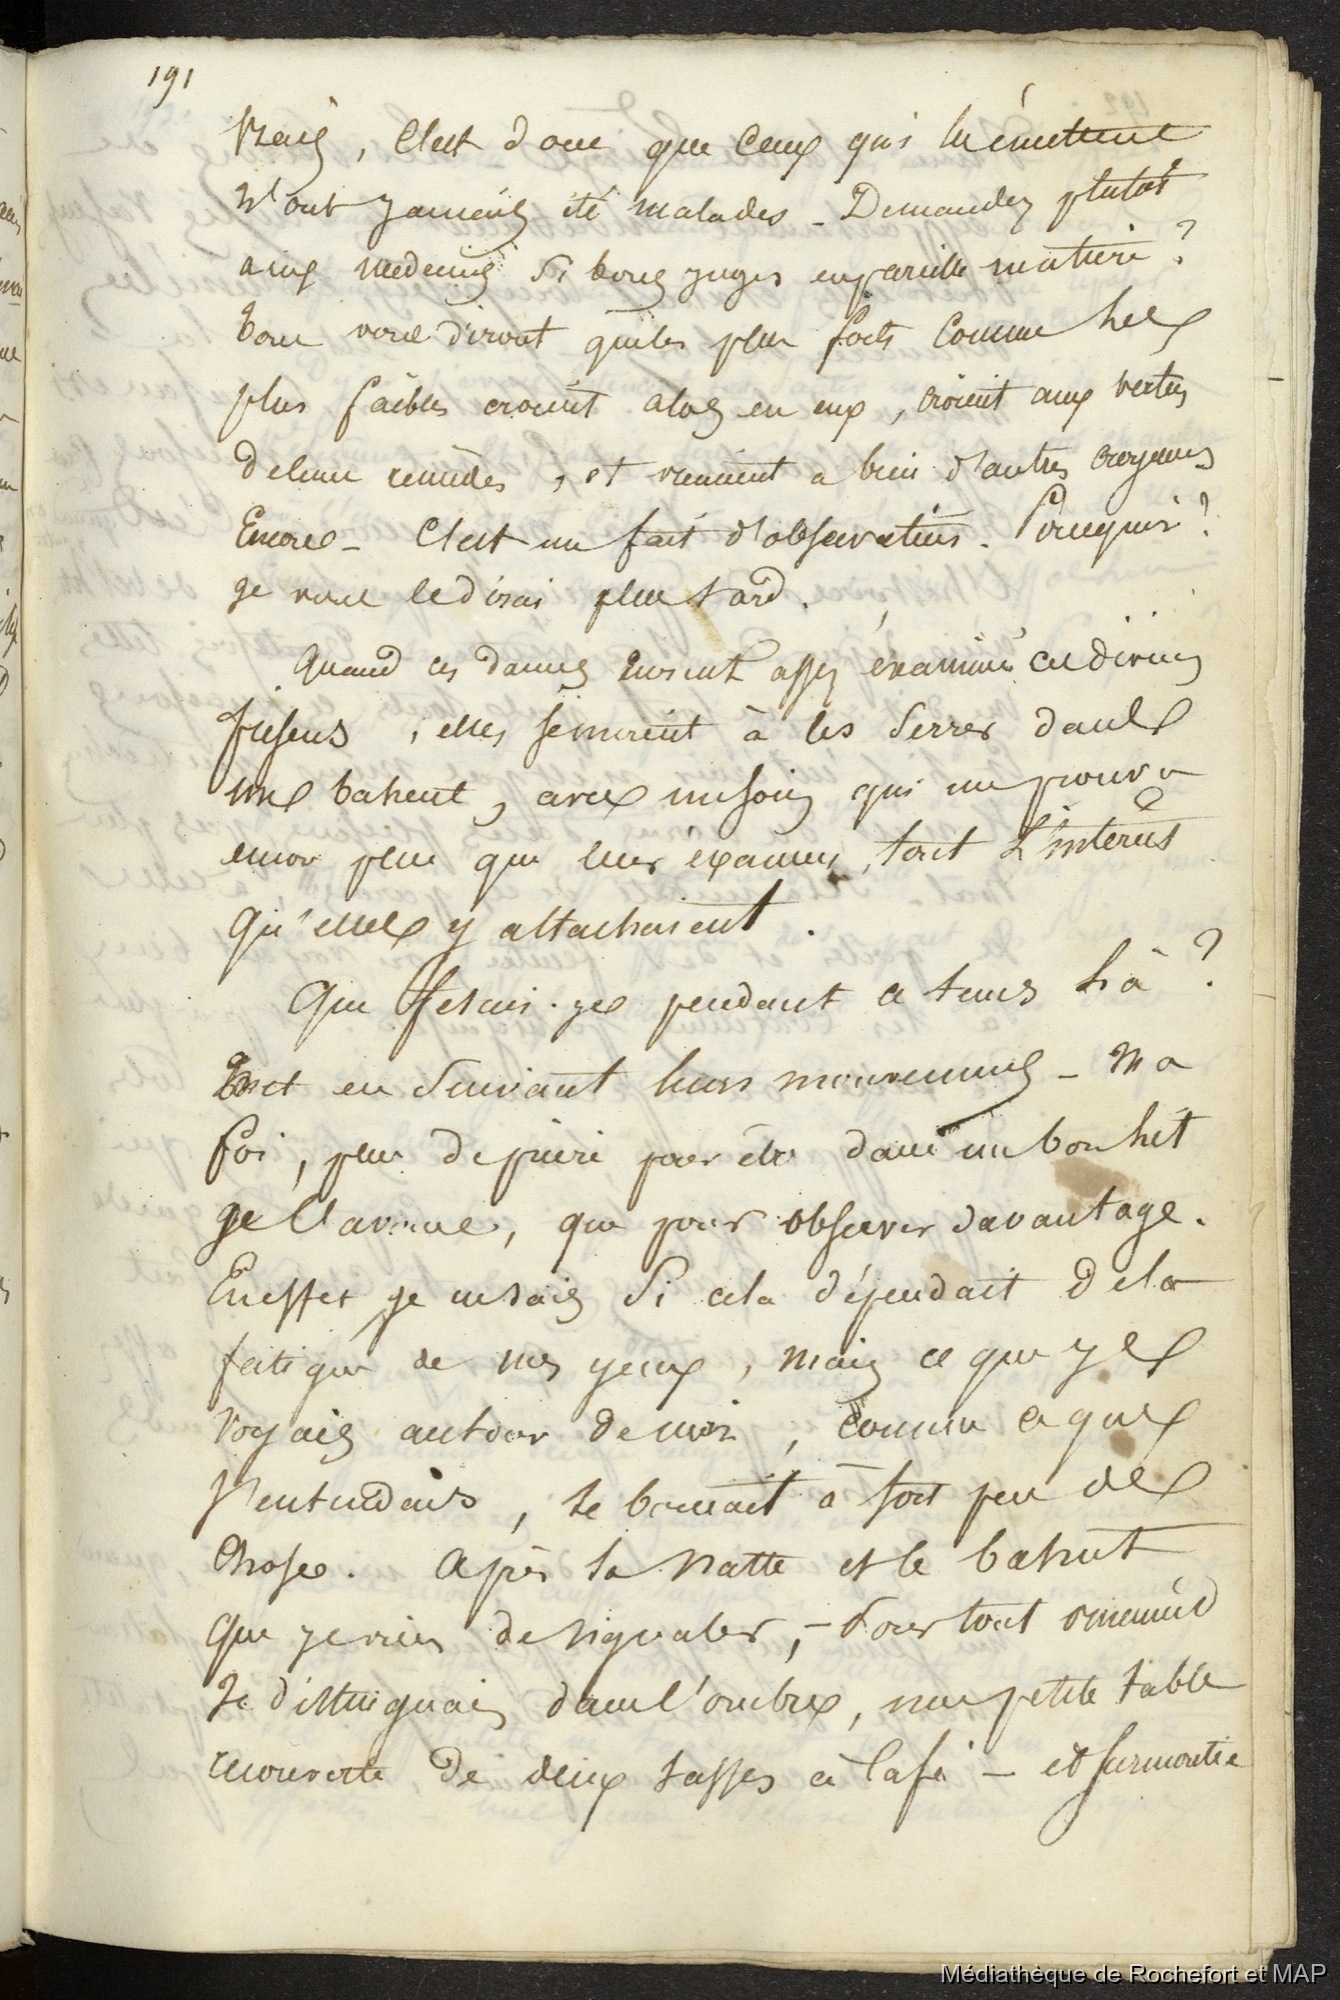 191
vrai, c'est donc que ceux qui l'émettent
n'ont jamais été malades – Demandez plutot
aux medecins si bons juges en pareille matière ?
tous vous diront que les plus forts comme les
plus faibles croient alors en eux, croient aux vertus
de leurs remèdes, et viennent a bien d'autres croyances
Encore – C'est un fait d'observation. Pourquoi ?
je vous le dirai plus tard.
Quand ces dames eurent assez examiné ces divins
présens, elles se mirent à les serrer dans
une bahut, avec un soin qui me prouva
encor plus que leur examen, tout l'intérêt
qu'elles y attachaient.
Que fesais-je pendant ce tems là ?
tout en suivant leurs mouvemens – Ma
foi, peu de prière pour être dans un bon lit
je l'avoue, que pour observer davantage.
En effet je ne sais si cela dépendait de la
fatigue de mes yeux, mais ce que je
voyais autour de moi, comme ce que
j'entendais, se bornait à fort peu de
chose. Après la natte et le bahut
que je viens de signaler, –
Je distinguais dans l'ombre, une petite table
recouverte de deux tasses à café – et surmontée
Médiathèque de Rochefort et MAP